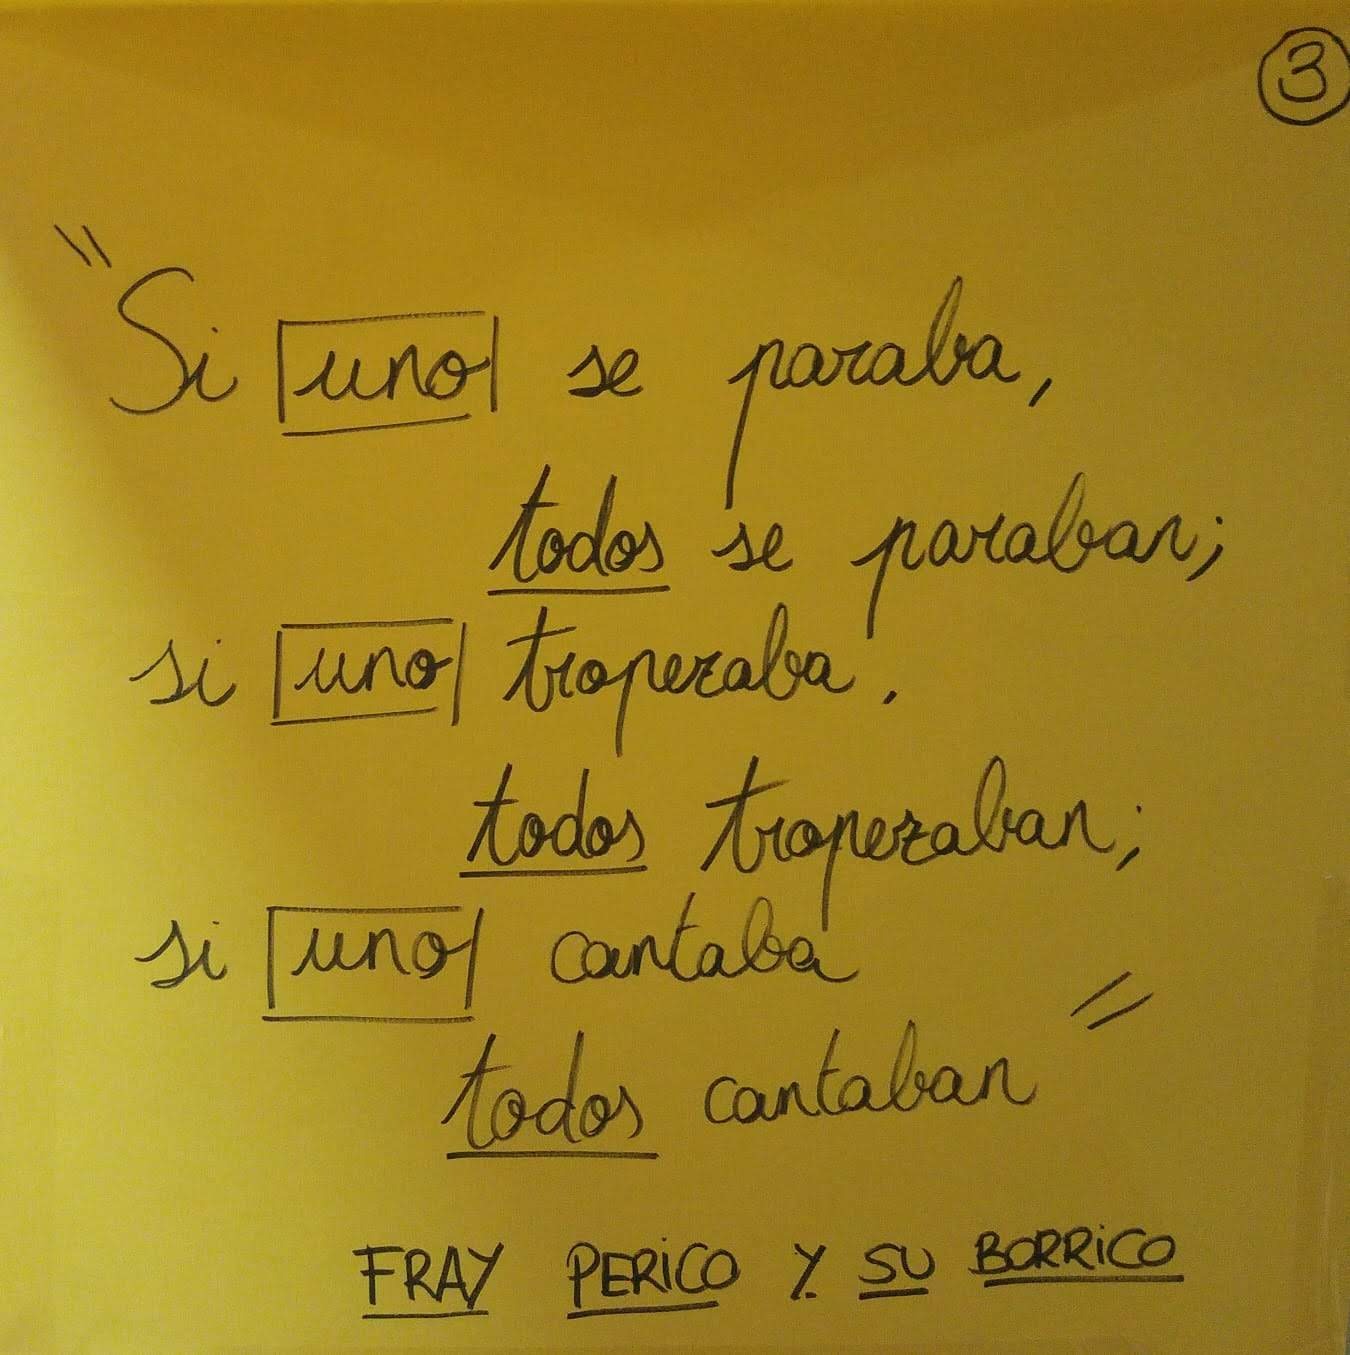 3
"Si uno se paraba,
todos se paraban;
si uno tropezaba.
todos tropezaban;
si uno cantaba
todos cantaban"
FRAY PERICO Y SU BORRICO